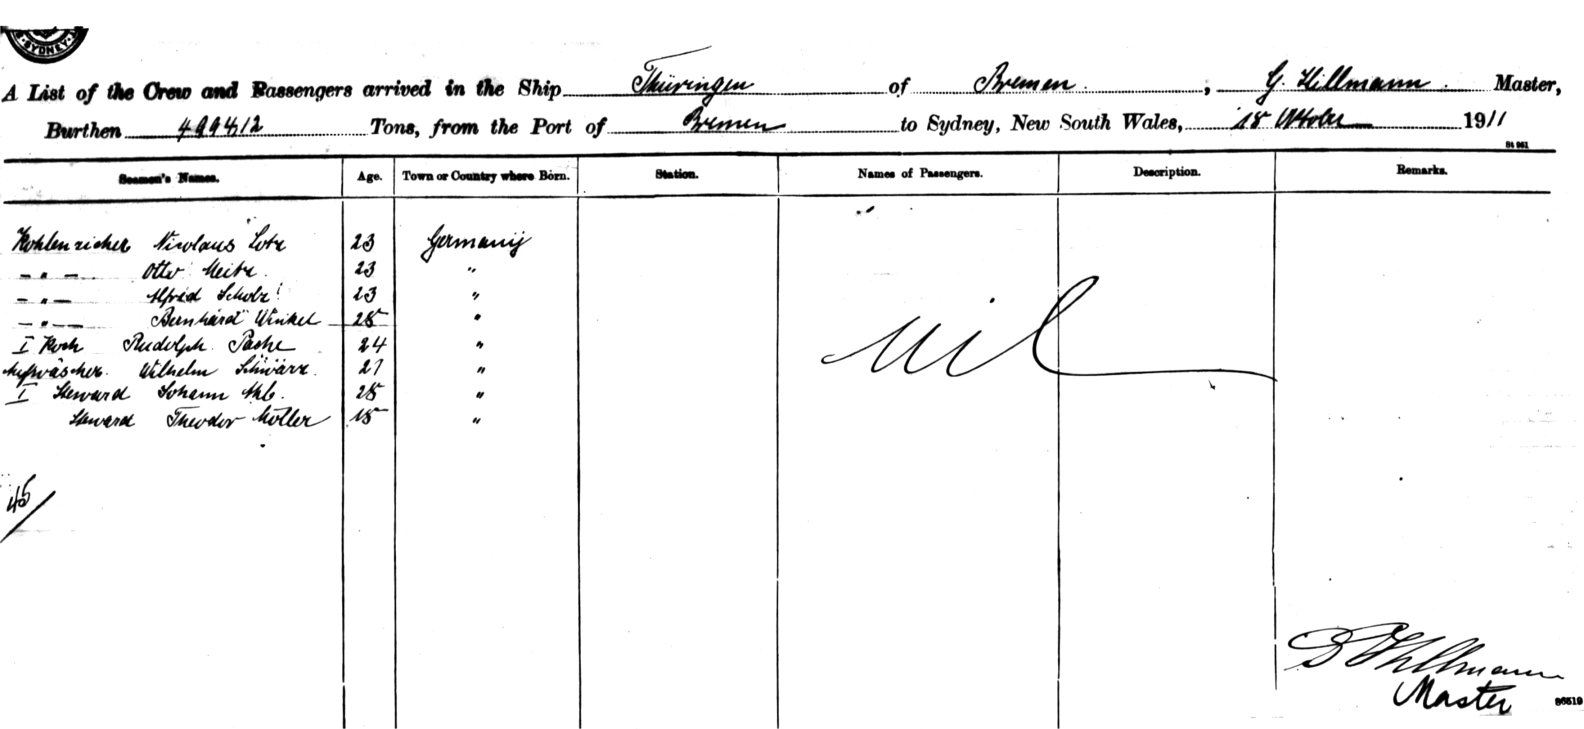 SYDNEY
A List of the Crew and Passengers arrived in the Ship Thüringen of Bremen, G. Hillmann Master,
Burthen 4994 1/2 Tons, from the Port of Bremen to Sydney, New South Wales, 18 October 1911
Seamen's Names. Age. Town or Country where Born. Station. Names of Passengers. Description. Remarks.
Kohlenzieher Nicolaus Lotz 23 Germany
— " — Otto 23 "
— " — Alfred Scholz 23 "
— " — Bernhard Winkel 25 "
I Koch Rudolph Pache 24 "
Aufwäscher Wilhelm Schwarz 21 "
I Steward Johann 25 "
Steward Theodor Möller 15 "
nil
45/
Hillmann
Master
86519